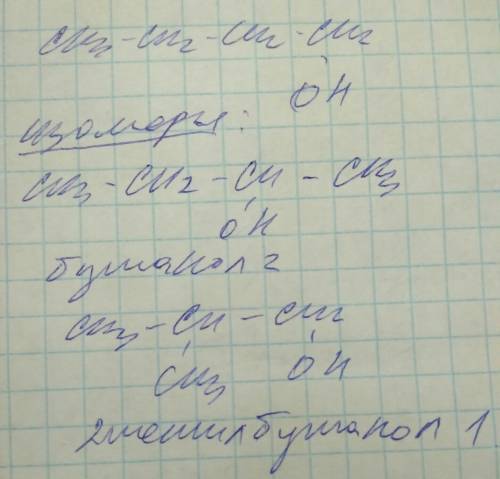 CH3-CH2-CH2-CH2
OH
изомеры:
CH3-CH2-CH-CH3
OH
бутанол 2
CH3-CH-CH2
CH3 OH
2метилбутанол 1